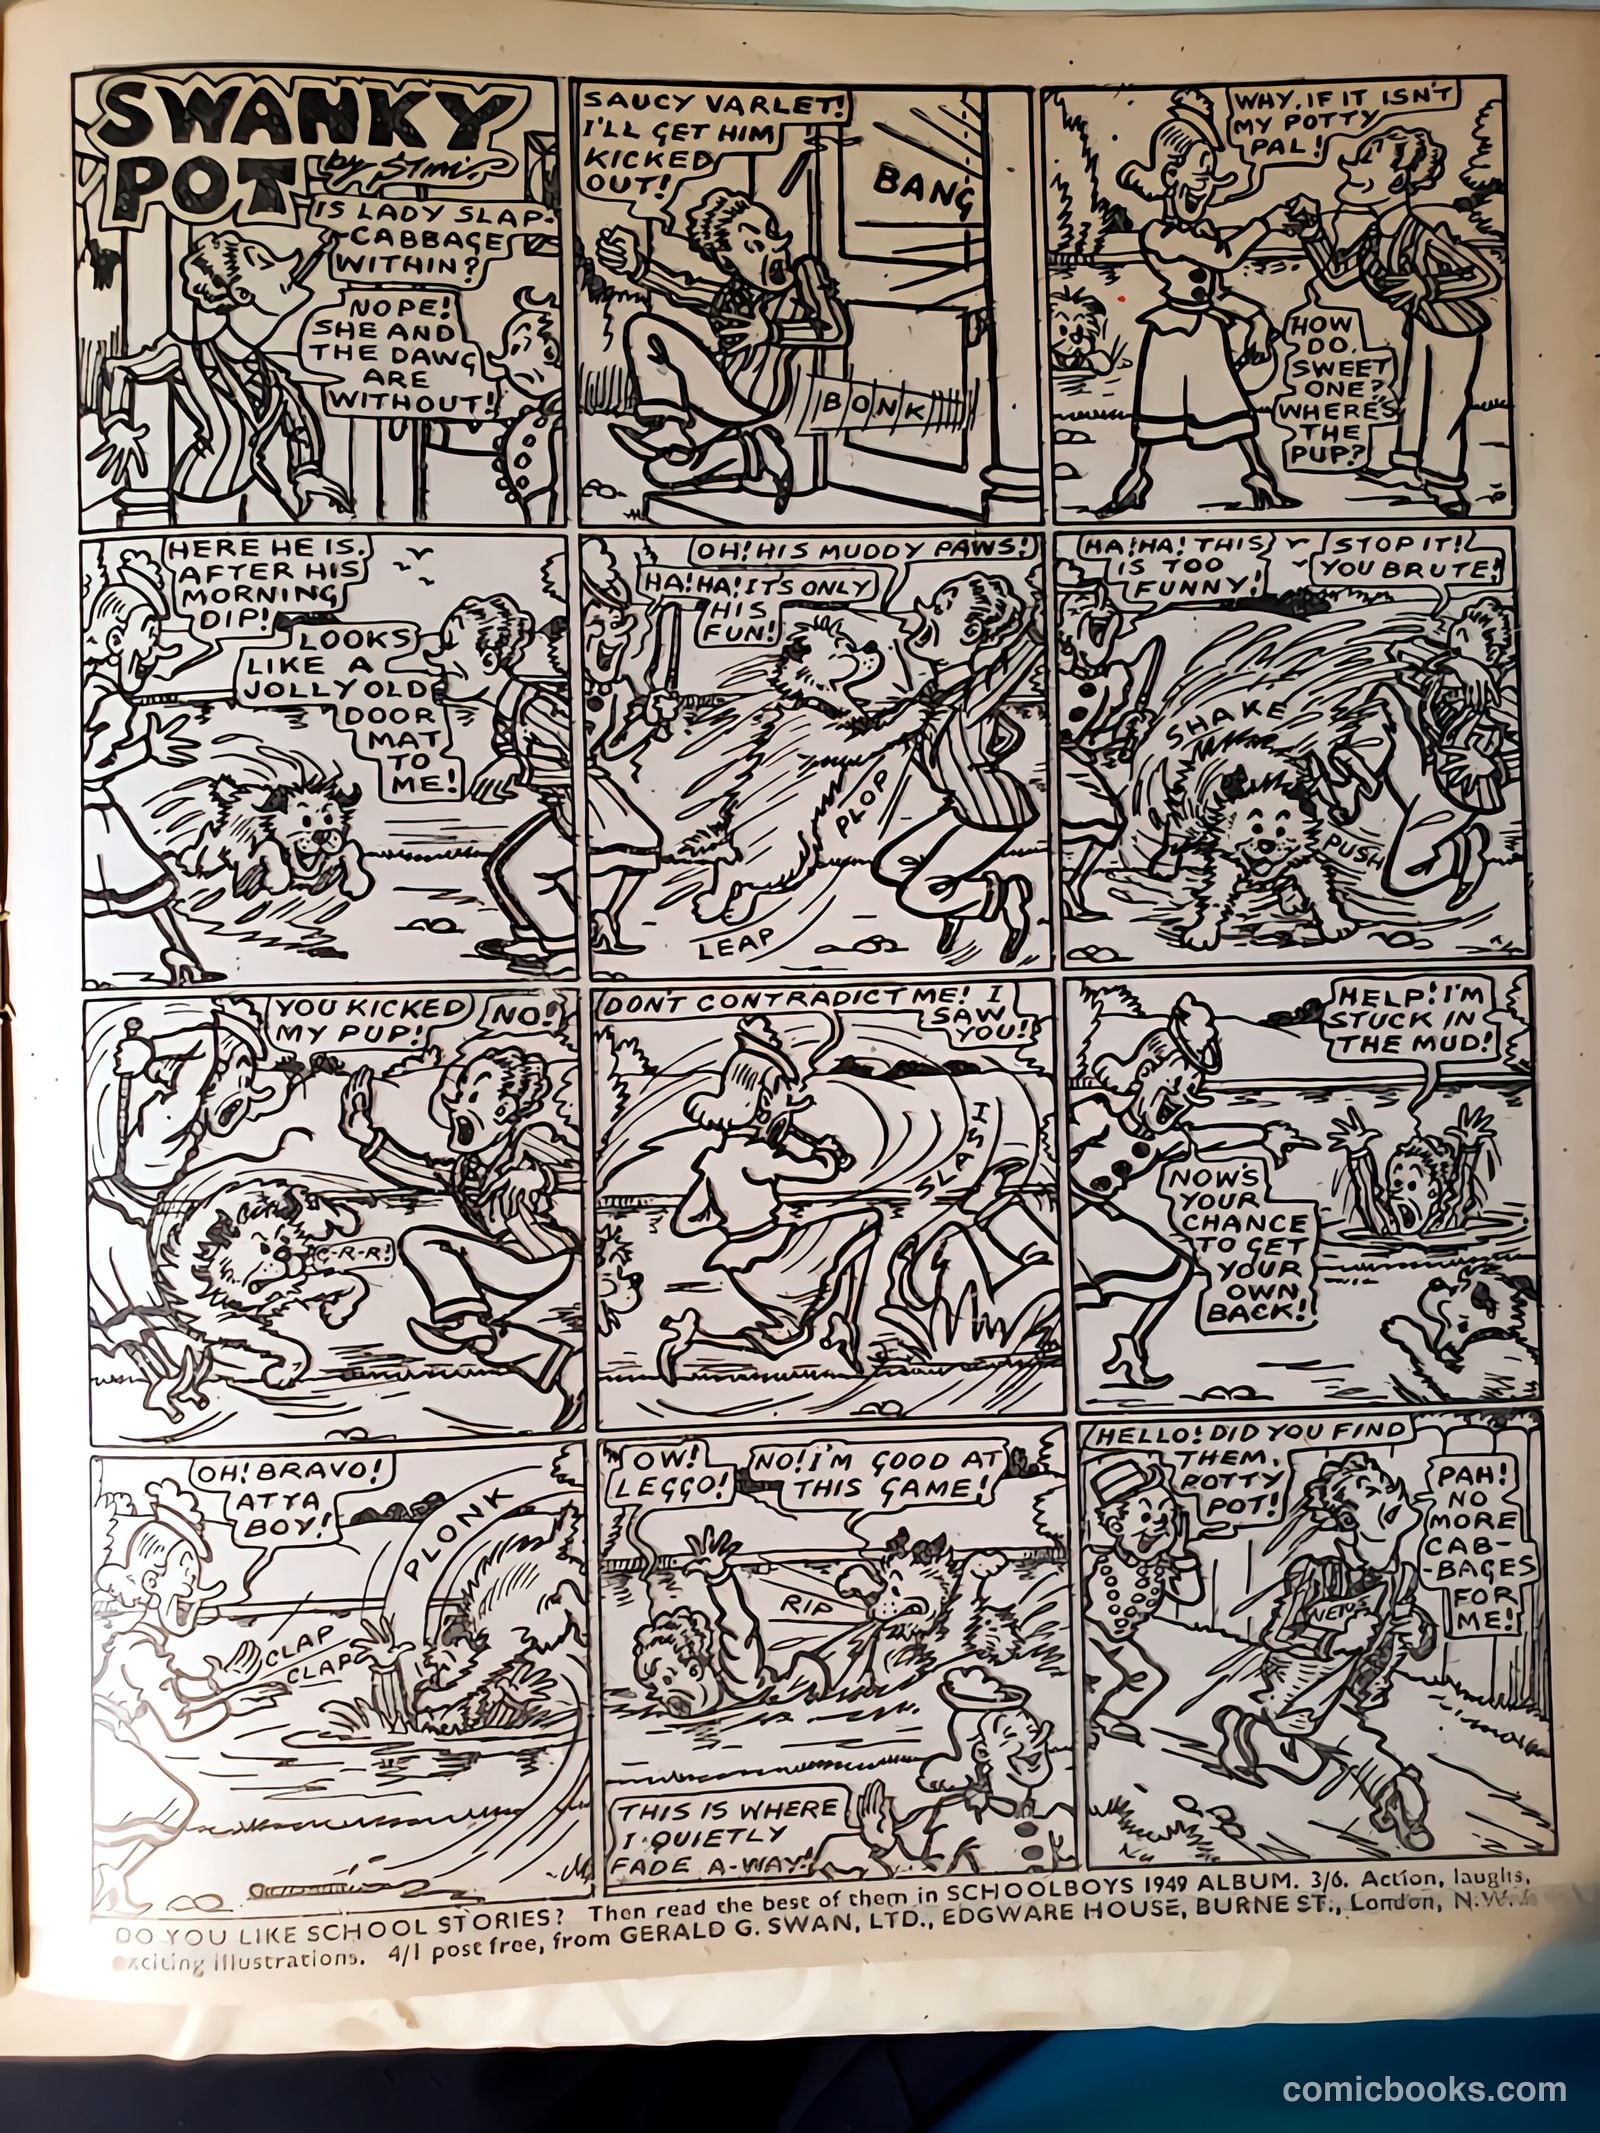 SWANKY
POT
by STIM.
IS LADY SLAP-
-CABBAGE
WITHIN?
NOPE!
SHE AND
THE DAWG
ARE
WITHOUT!
SAUCY VARLET!
I'LL GET HIM
KICKED
OUT!
BANG
BONK
WHY, IF IT ISN'T
MY POTTY
PAL!
HOW
DO,
SWEET
ONE?
WHERE'S
THE
PUP?
HERE HE IS,
AFTER HIS
MORNING
DIP!
LOOKS
LIKE A
JOLLY OLDE
DOOR
MAT
TO
ME!
OH! HIS MUDDY PAWS!
HA! HA! IT'S ONLY
HIS
FUN!
PLOP
LEAP
HA! HA! THIS
IS TOO
FUNNY!
STOP IT!
YOU BRUTE!
SHAKE
PUSH
YOU KICKED
MY PUP!
NO!
G-R-R!
DON'T CONTRADICT ME! I
SAW
YOU!
SLASH
HELP! I'M
STUCK IN
THE MUD!
NOW'S
YOUR
CHANCE
TO GET
YOUR
OWN
BACK!
OH! BRAVO!
ATTA
BOY!
PLONK
CLAP
CLAP
OW!
LEGGO!
NO! I'M GOOD AT
THIS GAME!
RIP
THIS IS WHERE
I QUIETLY
FADE A-WAY!
HELLO! DID YOU FIND
THEM,
POTTY
POT!
PAH!
NO
MORE
CAB-
-BAGES
FOR
ME!
NEWS
DO YOU LIKE SCHOOL STORIES? Then read the best of them in SCHOOLBOYS 1949 ALBUM. 3/6. Action, laughs,
exciting illustrations. 4/1 post free, from GERALD G. SWAN, LTD., EDGWARE HOUSE, BURNE ST., London, N.W.
comicbooks.com